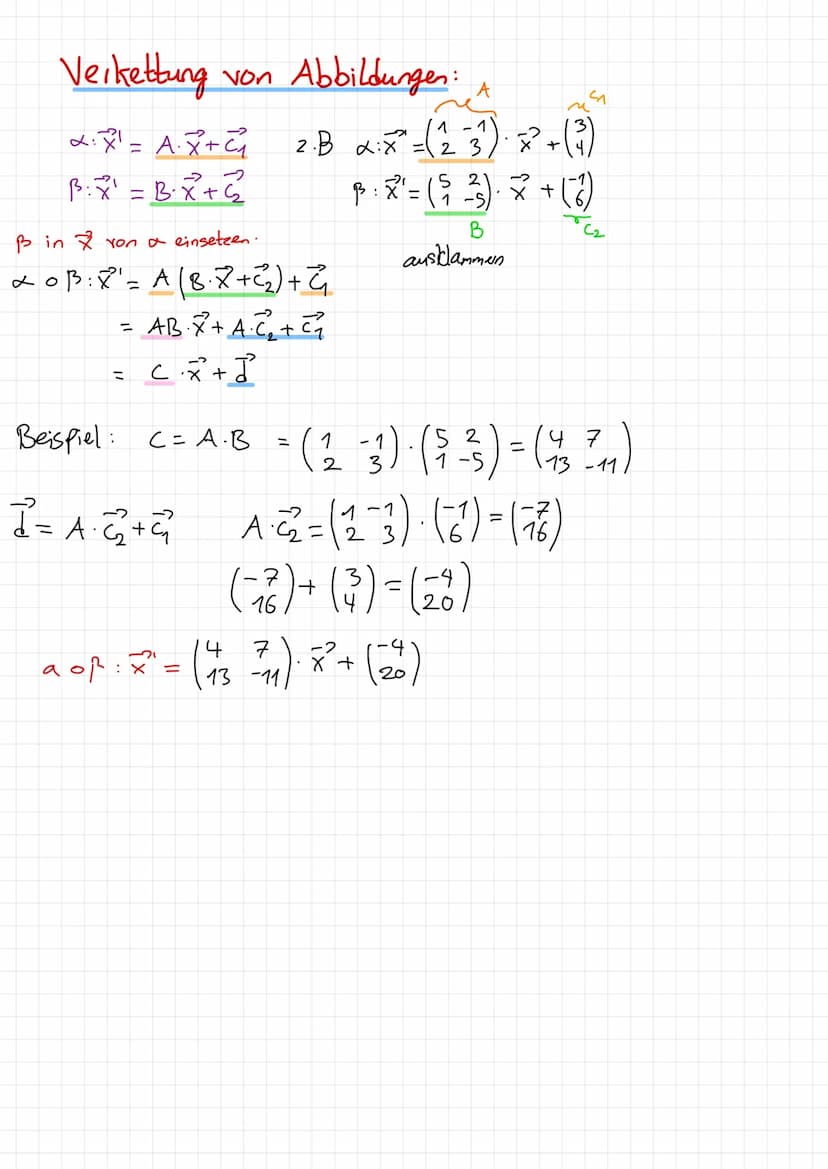 Verkettung von Abbildungen:
A c₁
α: x⃗' = A·x⃗ + c⃗₁ z.B α: x⃗' = (1 -1; 2 3) · x⃗ + (3; 4)
β: x⃗' = B·x⃗ + c⃗₂ β: x⃗' = (5 2; 1 -5) · x⃗ + (-1; 6)
B c₂
β in x⃗ von α einsetzen.
ausklammen
α o β: x⃗' = A (B·x⃗ + c⃗₂) + c⃗₁
= AB·x⃗ + A·c⃗₂ + c⃗₁
= C·x⃗ + d⃗
Beispiel: C = A·B = (1 -1; 2 3) · (5 2; 1 -5) = (4 7; 13 -11)
d⃗ = A·c⃗₂ + c⃗₁ A·c⃗₂ = (1 -1; 2 3) · (-1; 6) = (-7; 16)
(-7; 16) + (3; 4) = (-4; 20)
a o β: x⃗' = (4 7; 13 -11) · x⃗ + (-4; 20)